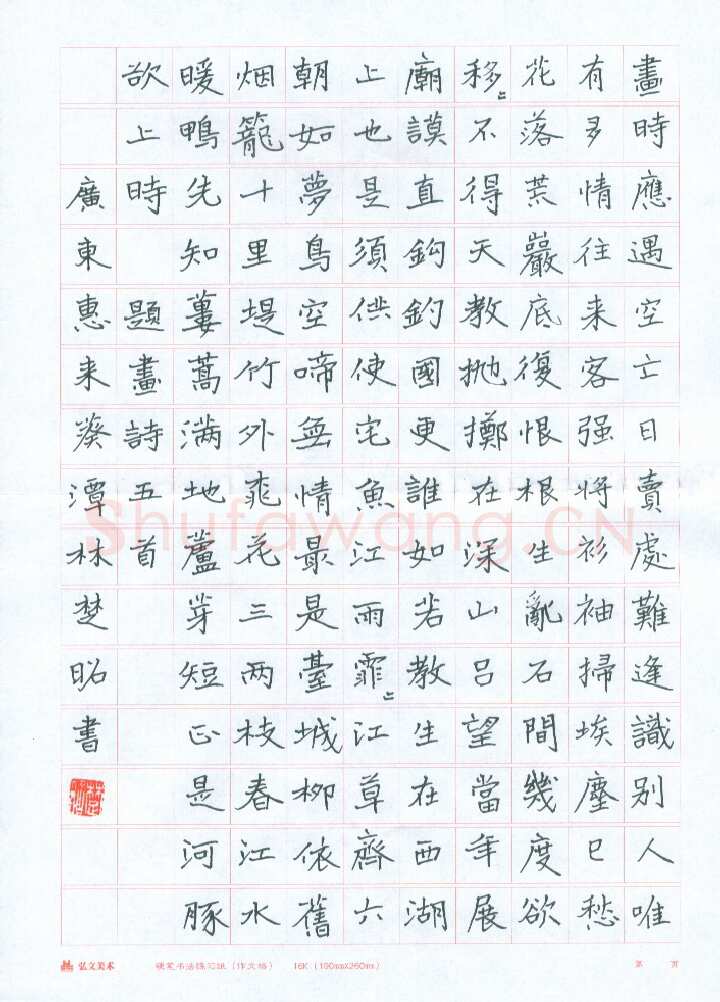 畫時應遇空士日賣處難逢識别人唯
有多情往来客强将衫袖掃埃塵已愁
花落荒巖底復恨根生亂石間幾度欲
移〻不得天教抛擲在深山吕望當年展
廟謨直鈎釣國更誰如若教生在西湖
上也是須供使宅魚江雨霏〻江草齊六
朝如夢鳥空啼無情最是臺城柳依舊
烟籠十里堤竹外桃花三两枝春江水
暖鴨先知蔞蒿满地蘆芽短正是河豚
欲上時 題畫詩五首
廣東惠来葵潭林楚昭書
Shufawang.CN
弘文美术 硬笔书法练习纸（作文格） 16K（190mmX260mm） 第 页